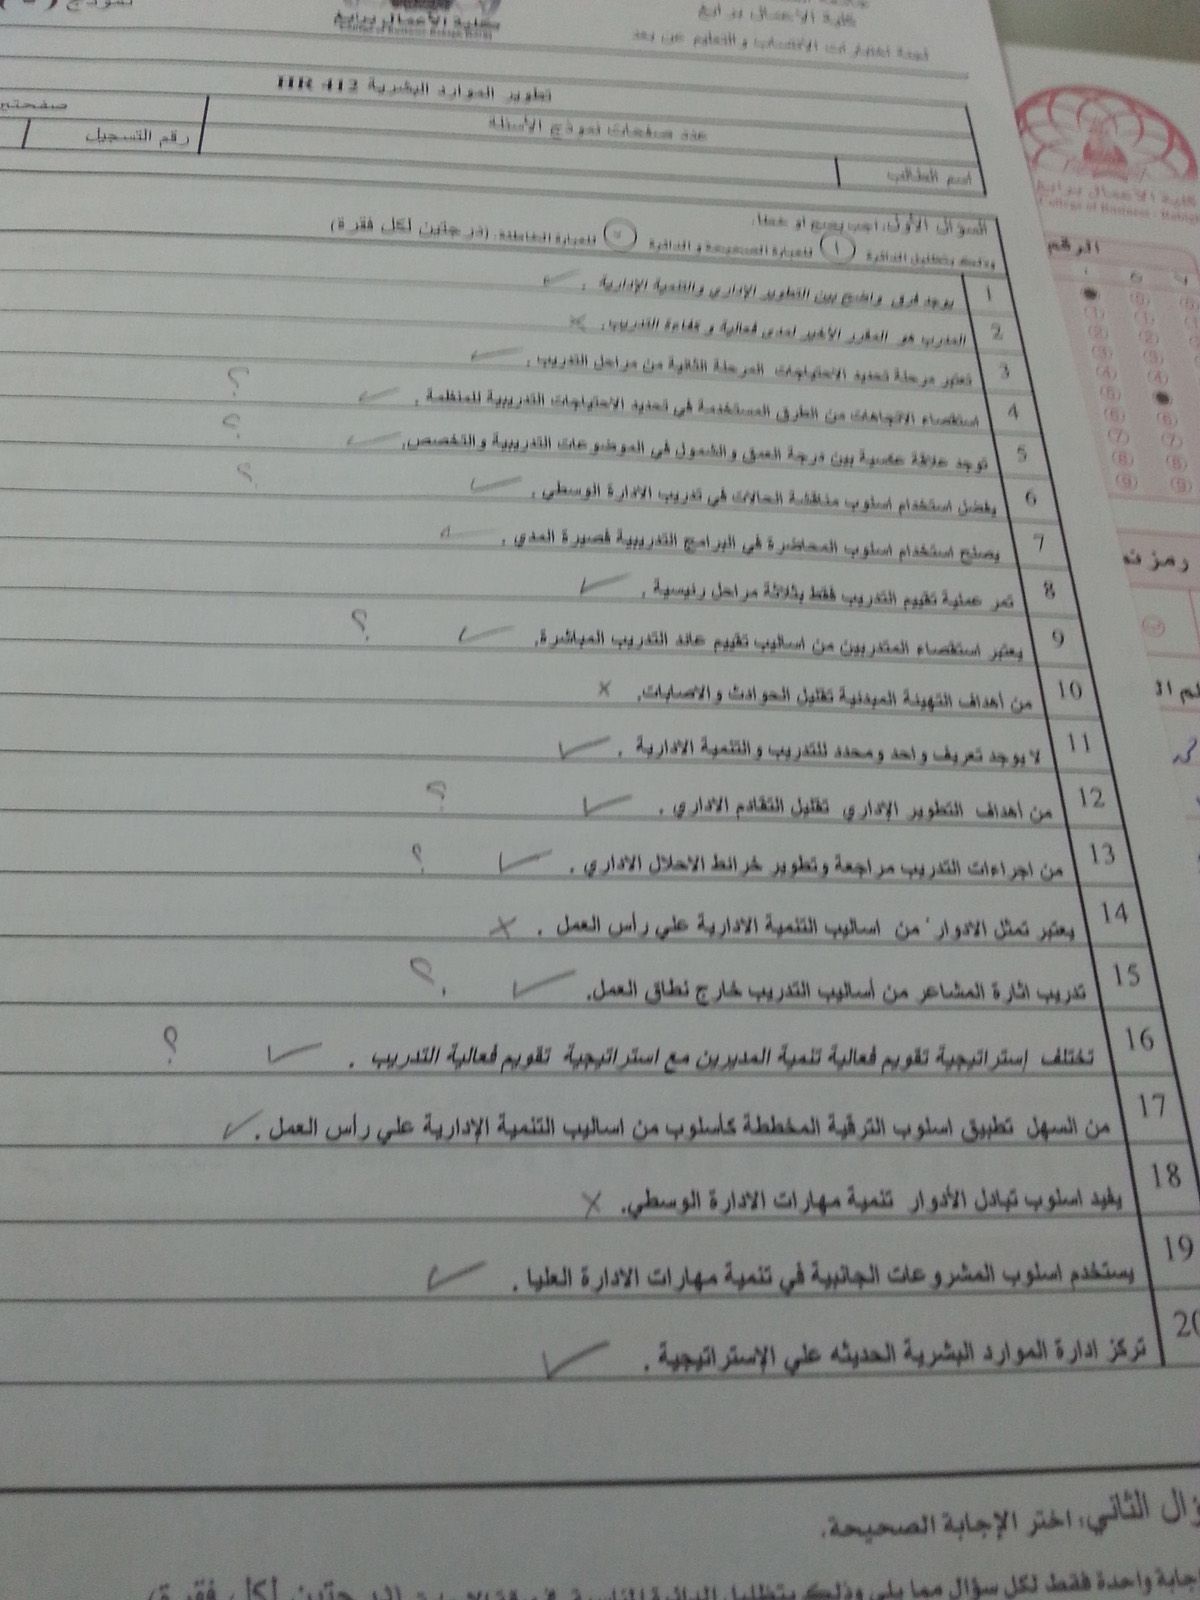 نموذج (
كلية الأعمال برابغ
كلية الأعمال برابغ
College of Business - Rabigh
لجنة اختبارات الانتساب والتعليم عن بعد
تطوير الموارد البشرية HR 412
عدد صفحات نموذج الأسئلة
صفحتين
اسم الطالب
رقم التسجيل
السؤال الأول: اجب بصح أو خطأ.
وذلك بتظليل الدائرة (١) للعبارة الصحيحة والدائرة للعبارة الخاطئة. (درجتين لكل فقرة)
1 يوجد فرق واضح بين التطوير الإداري والتنمية الإدارية . ✓
2 المدرب هو المقرر الأخير لمدى فعالية وكفاءة التدريب. ×
3 تعتبر مرحلة تحديد الاحتياجات المرحلة الثانية من مراحل التدريب . ✓
4 استقصاء الاتجاهات من الطرق المستخدمة في تحديد الاحتياجات التدريبية للمنظمة . ✓ ؟
5 توجد علاقة عكسية بين درجة العمق والشمول في الموضوعات التدريبية والتخصص. ✓ ؟
6 يفضل استخدام اسلوب مناقشة الحالات في تدريب الادارة الوسطي . ✓ ؟
7 يصلح استخدام اسلوب المحاضرة في البرامج التدريبية قصيرة المدي .
8 تمر عملية تقييم التدريب فقط بثلاثة مراحل رئيسية . ✓
9 يعتبر استقصاء المتدربين من اساليب تقييم عائد التدريب المباشرة. ✓ ؟
10 من أهداف التهيئة المبدئية تقليل الحوادث والاصابات. ×
11 لا يوجد تعريف واحد ومحدد للتدريب والتنمية الادارية . ✓
12 من أهداف التطوير الإداري تقليل التقادم الاداري . ✓ ؟
13 من اجراءات التدريب مراجعة وتطوير خرائط الاحلال الاداري . ✓ ؟
14 يعتبر تمثل الادوار من اساليب التنمية الادارية علي رأس العمل . ×
15 تدريب اثارة المشاعر من أساليب التدريب خارج نطاق العمل. ✓ ؟
16 تختلف إستراتيجية تقويم فعالية تنمية المديرين مع استراتيجية تقويم فعالية التدريب . ✓ ؟
17 من السهل تطبيق اسلوب الترقية المخططة كأسلوب من اساليب التنمية الإدارية علي رأس العمل . ✓
18 يفيد اسلوب تبادل الأدوار تنمية مهارات الادارة الوسطي. ×
19 يستخدم اسلوب المشروعات الجانبية في تنمية مهارات الادارة العليا . ✓
20 تركز ادارة الموارد البشرية الحديثه علي الإستراتيجية . ✓
ؤال الثاني: اختر الإجابة الصحيحة.
جابة واحدة فقط لكل سؤال مما يلي وذلك بتظليل الدائرة
كلية الأعمال برابغ
College of Business - Rabigh
الرقم
رمز